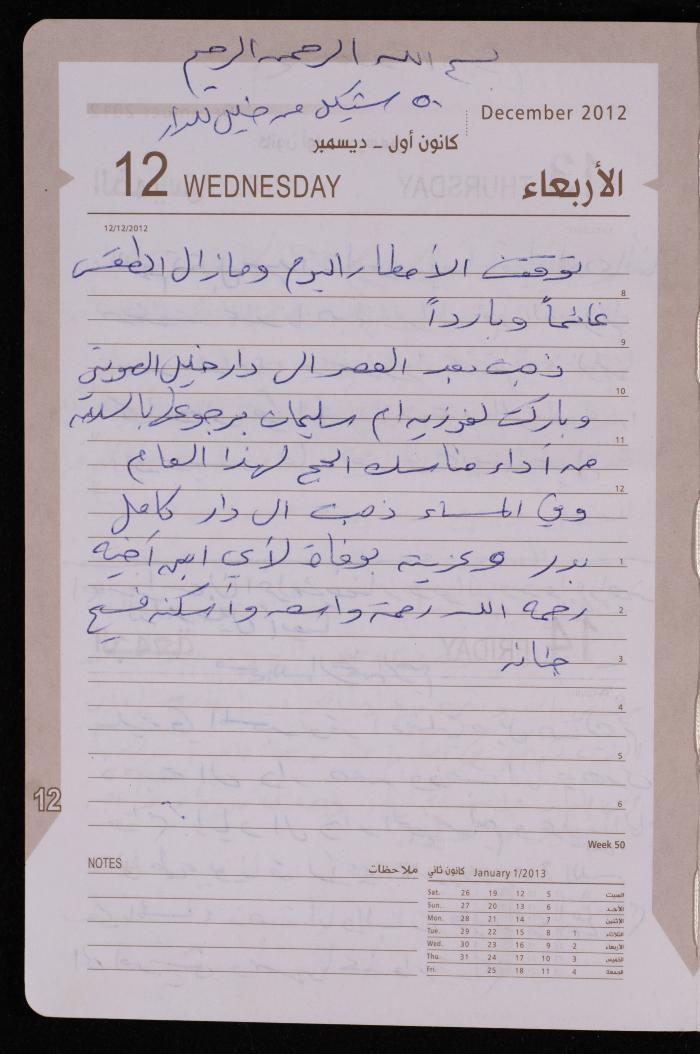 بسم الله الرحمن الرحيم
٥٠ شيكل من خليل للدار
December 2012
كانون أول – ديسمبر
12 WEDNESDAY الأربعاء
12/12/2012
توقفت الأمطار اليوم ومازال الطقس
8
غائماً وبارداً
9
ذهبت بعد العصر الى دار خليل
10
وباركت لفوزيه ام سليمان برجوعها بالسلامة
11
من أداء مناسك الحج لهذا العام
12
وفي المساء ذهبت الى دار كامل
بدر وعزيته بوفاة لأي ابن أخيه
1
رحمه الله رحمة واسعه وأسكنه فسيح
2
جنانه
3
4
5
12
6
Week 50
NOTES ملاحظات
January 1/2013 كانون ثاني
Sat. 26 19 12 5 السبت
Sun. 27 20 13 6 الأحد
Mon. 28 21 14 7 الاثنين
Tue. 29 22 15 8 1 الثلاثاء
Wed. 30 23 16 9 2 الأربعاء
Thu. 31 24 17 10 3 الخميس
Fri. 25 18 11 4 الجمعة